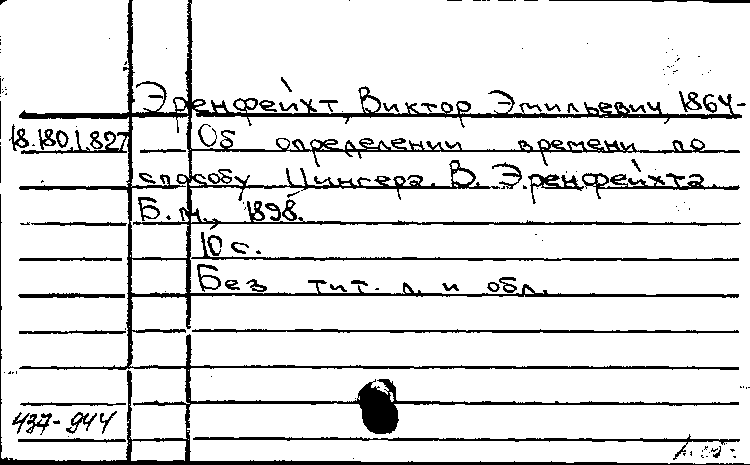 Эренфейхт, Виктор Эмильевич, 1864-
18.180.1.827 Об определении времени по
способу Цингера. В. Эренфейхта.
Б. м., 1898.
10 с.
Без тит. л. и обл.
437-944